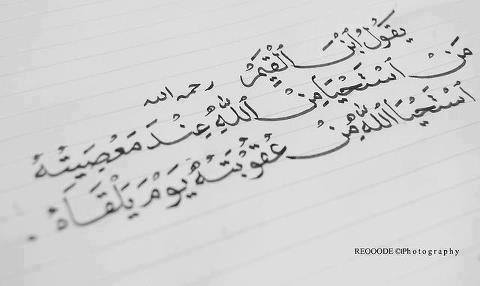 يَقُولُ ابْنُ الْقَيِّمُ رحمه الله
مَنْ اَسْتَحْيَا مِنْ اَللَّهِ عِنْدَ مَعْصِيَتِهُ
اَسْتَحْيَا اللَّهُ مِنْ عُقُوبَتِهُ يَوْمَ يَلْقَاهْ .
REOOODE ©iPhotography